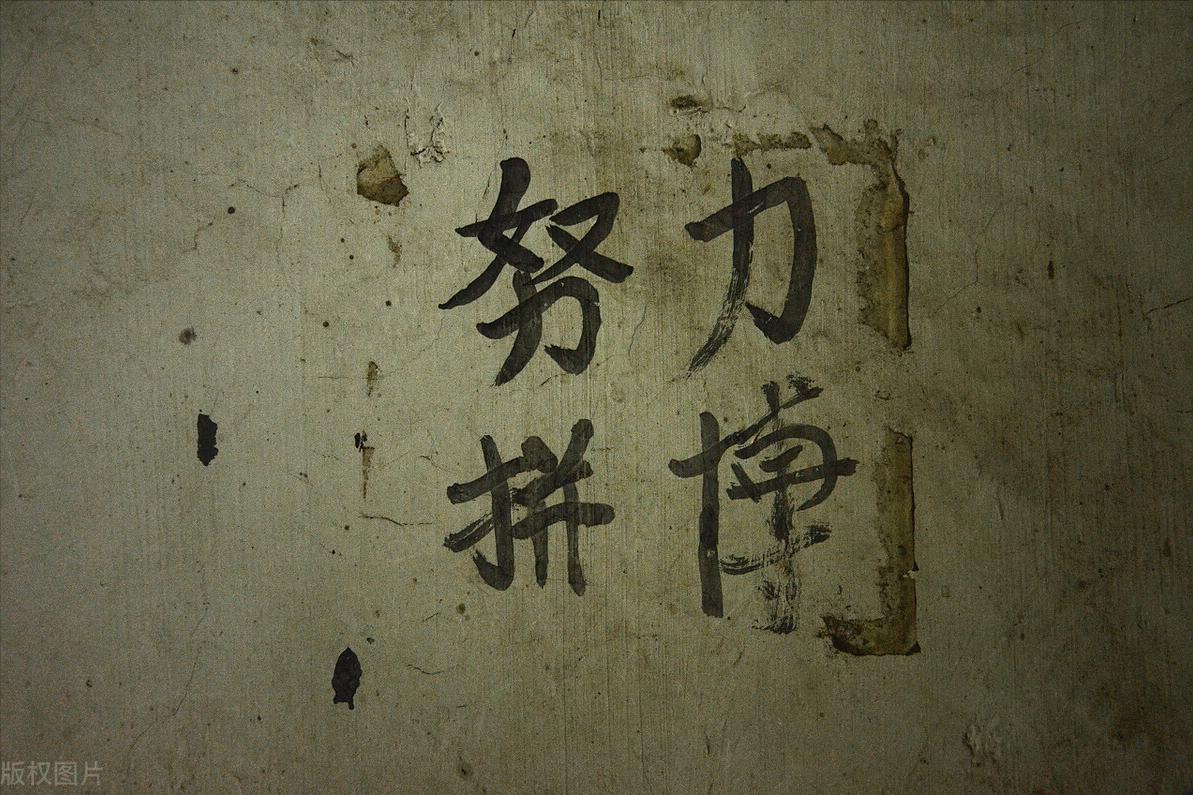 努力
拼博
版权图片